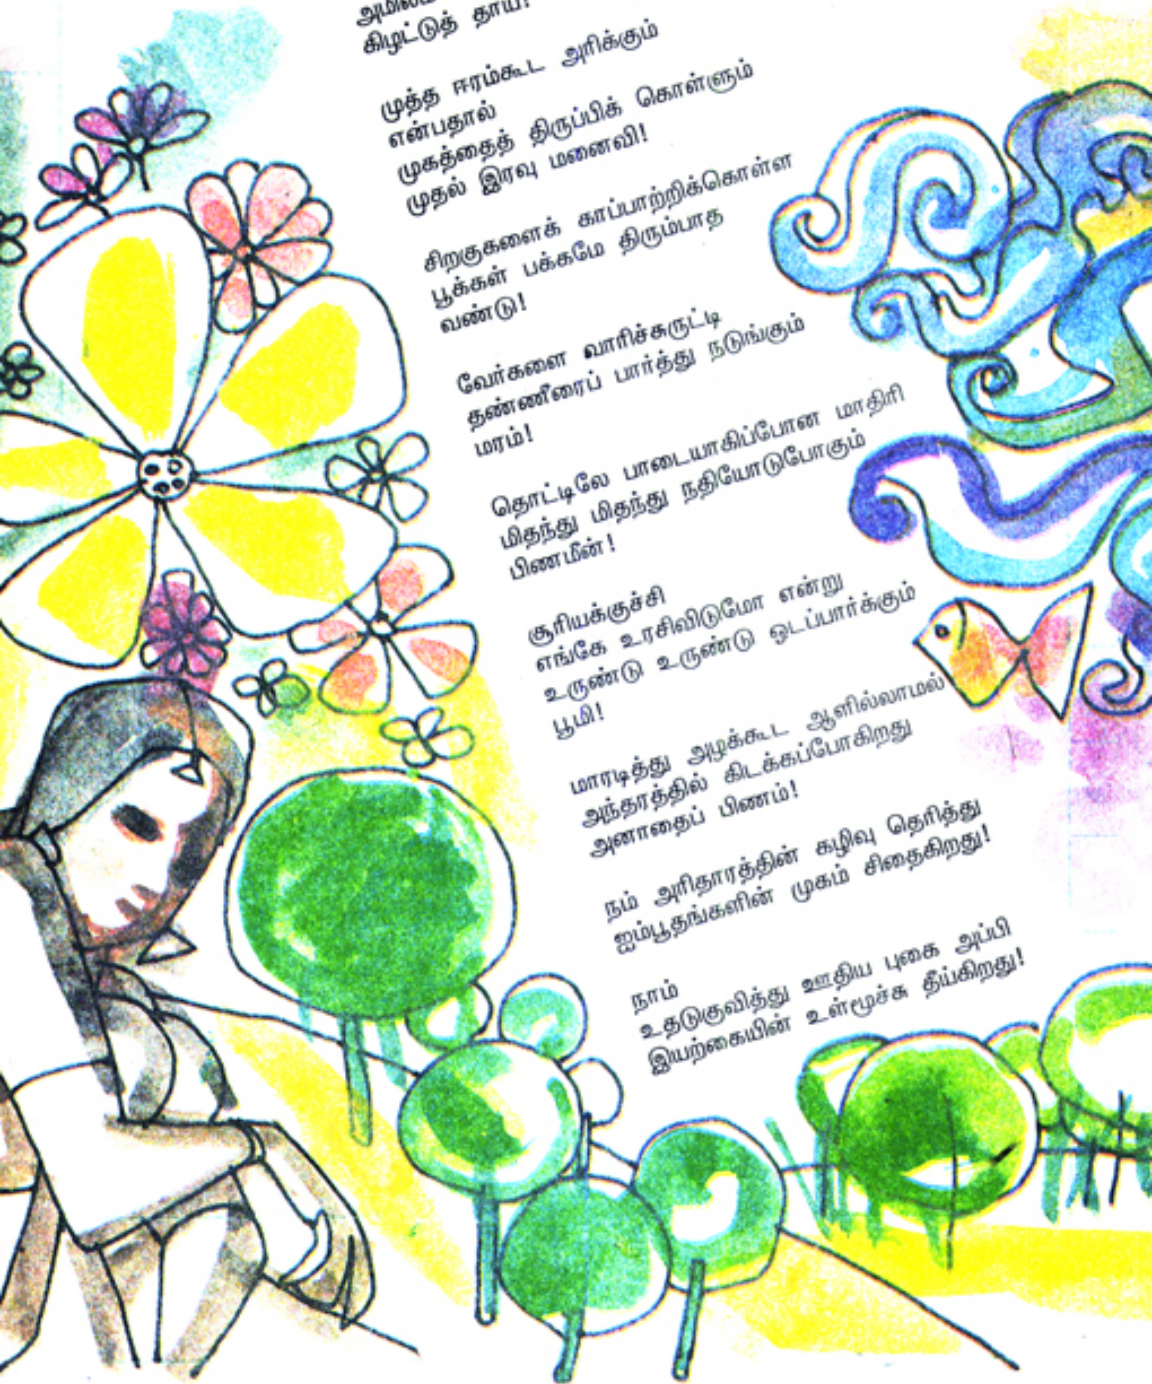 கிழட்டுத் தாய்!
முத்த ஈரம்கூட அரிக்கும்
என்பதால்
முகத்தைத் திருப்பிக் கொள்ளும்
முதல் இரவு மனைவி!
சிறகுகளைக் காப்பாற்றிக்கொள்ள
பூக்கள் பக்கமே திரும்பாத
வண்டு!
வேர்களை வாரிச்சுருட்டி
தண்ணீரைப் பார்த்து நடுங்கும்
மரம்!
தொட்டிலே பாடையாகிப்போன மாதிரி
மிதந்து மிதந்து நதியோடுபோகும்
பிணமீன்!
சூரியக்குச்சி
எங்கே உரசிவிடுமோ என்று
உருண்டு உருண்டு ஓடப்பார்க்கும்
பூமி!
மாரடித்து அழக்கூட ஆளில்லாமல்
அந்தரத்தில் கிடக்கப்போகிறது
அனாதைப் பிணம்!
நம் அரிதாரத்தின் கழிவு தெரித்து
ஐம்பூதங்களின் முகம் சிதைகிறது!
நாம்
உதடுகுவித்து ஊதிய புகை அப்பி
இயற்கையின் உள்மூச்சு தீய்கிறது!